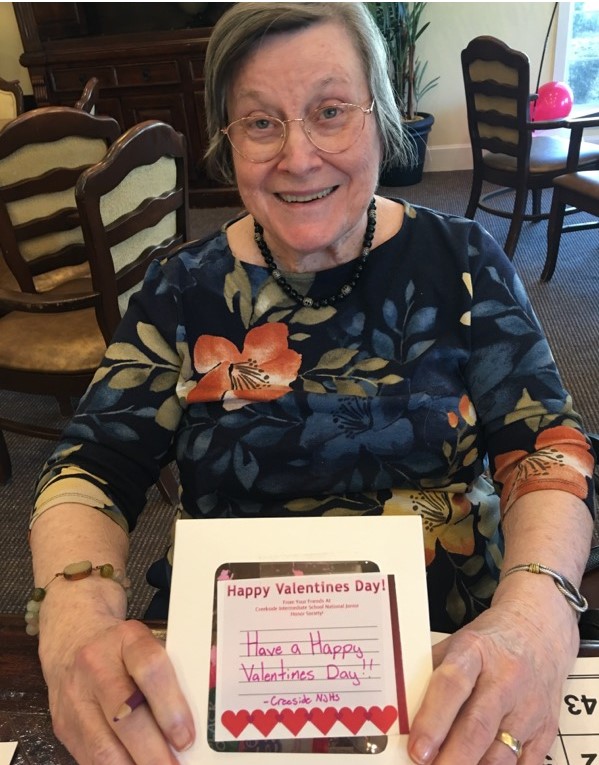 Happy Valentines Day!
From Your Friends At
Creekside Intermediate School National Junior
Honor Society!
Have a Happy
Valentines Day!!
-Creeside NJHS
43
2